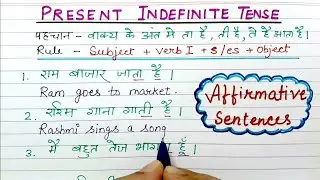 PRESENT INDEFINITE TENSE
पहचान - वाक्य के अंत में ता है, ती है, ते हैं आता है।
Rule - Subject + Verb I + s/es + Object
1. राम बाजार जाता है।
Ram goes to market.
2. रश्मि गाना गाती है।
Rashmi sings a song
3. मैं बहुत तेज भागता हूँ।
Affirmative
Sentences